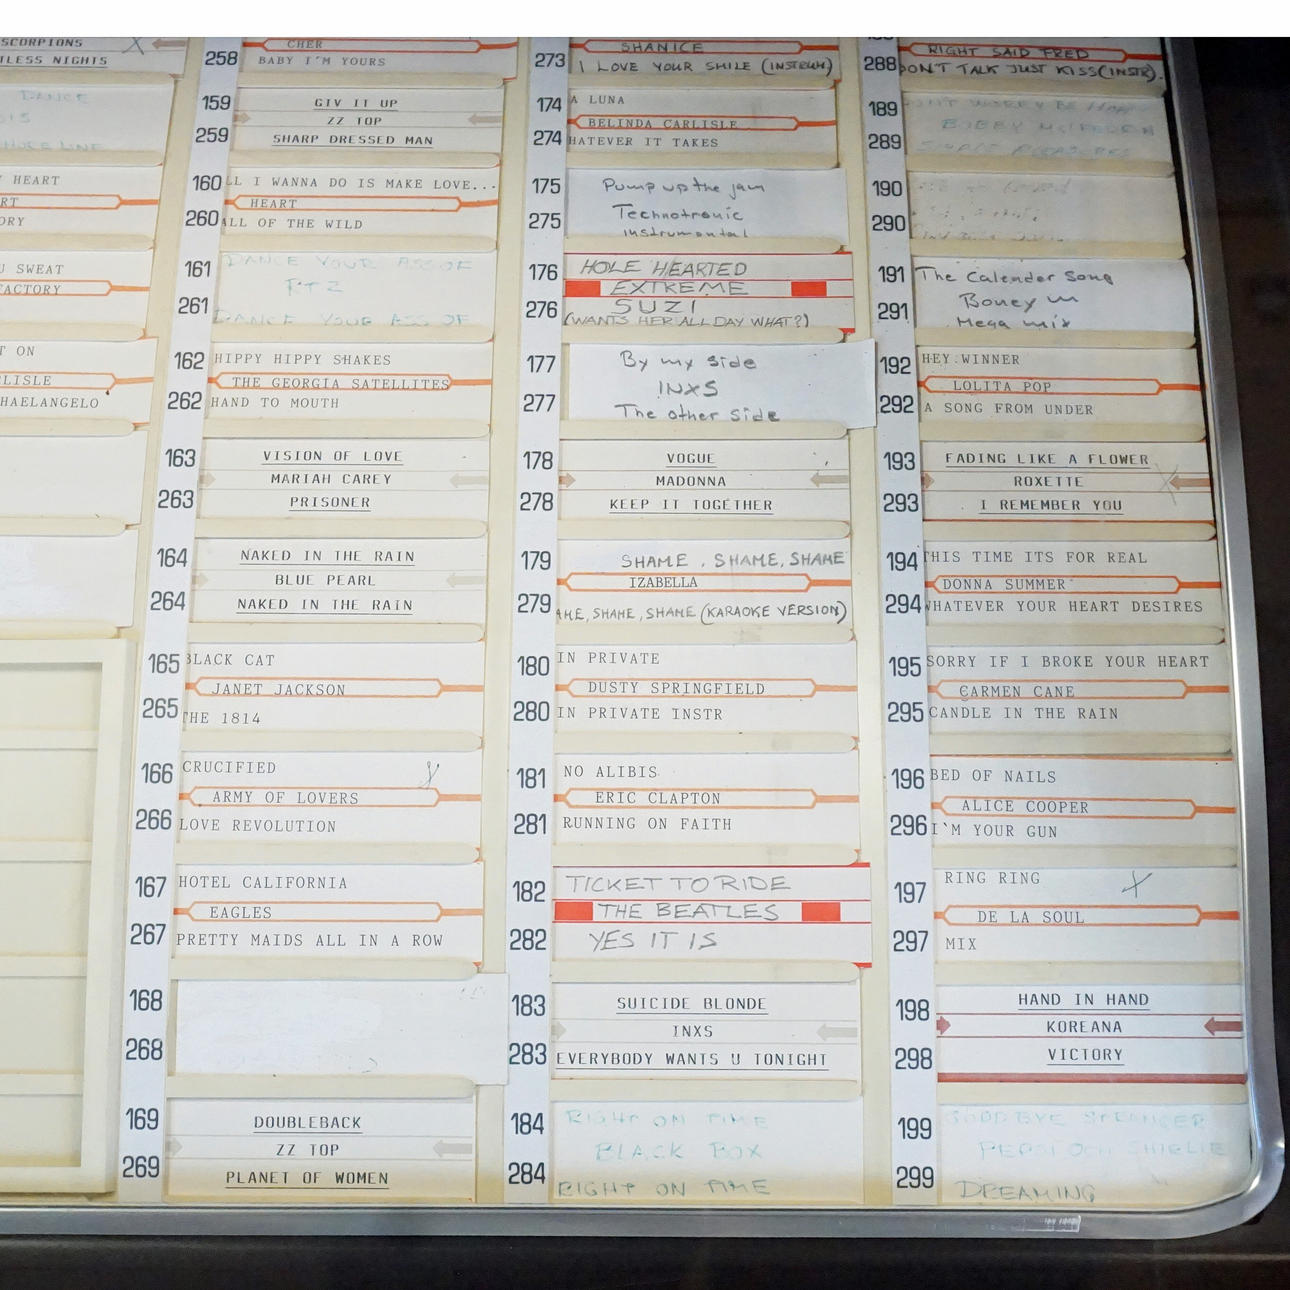 SCORPIONS
TLESS NIGHTS
DANCE
HOUSE LINE
HEART
RT
ORY
U SWEAT
FACTORY
T ON
LISLE
HAELANGELO
258
CHER
BABY I'M YOURS
159
GIV IT UP
ZZ TOP
259
SHARP DRESSED MAN
160
LL I WANNA DO IS MAKE LOVE...
HEART
260
ALL OF THE WILD
161
DANCE YOUR ASS OF
RTZ
261
DANCE YOUR ASS OF
162
HIPPY HIPPY SHAKES
THE GEORGIA SATELLITES
262
HAND TO MOUTH
163
VISION OF LOVE
MARIAH CAREY
263
PRISONER
164
NAKED IN THE RAIN
BLUE PEARL
264
NAKED IN THE RAIN
165
BLACK CAT
JANET JACKSON
265
THE 1814
166
CRUCIFIED
ARMY OF LOVERS
266
LOVE REVOLUTION
167
HOTEL CALIFORNIA
EAGLES
267
PRETTY MAIDS ALL IN A ROW
168
268
169
DOUBLEBACK
ZZ TOP
269
PLANET OF WOMEN
SHANICE
273
I LOVE YOUR SMILE (INSTRUM)
174
A LUNA
BELINDA CARLISLE
274
HATEVER IT TAKES
175
Pump up the jam
Technotronic
275
instrumental
176
HOLE HEARTED
EXTREME
276
SUZI
(WANTS HER ALL DAY WHAT?)
177
By my side
INXS
277
The other side
178
VOGUE
MADONNA
278
KEEP IT TOGETHER
179
SHAME, SHAME, SHAME
IZABELLA
279
AME, SHAME, SHAME (KARAOKE VERSION)
180
IN PRIVATE
DUSTY SPRINGFIELD
280
IN PRIVATE INSTR
181
NO ALIBIS
ERIC CLAPTON
281
RUNNING ON FAITH
182
TICKET TO RIDE
THE BEATLES
282
YES IT IS
183
SUICIDE BLONDE
INXS
283
EVERYBODY WANTS U TONIGHT
184
RIGHT ON TIME
BLACK BOX
284
RIGHT ON TIME
RIGHT SAID FRED
288
DON'T TALK JUST KISS (INSTR).
189
DON'T WORRY BE HAPPY
BOBBY McFERRIN
289
SIMPLE PLEASURES
190
290
191
The Calender Song
Boney m
291
Mega mix
192
HEY WINNER
LOLITA POP
292
A SONG FROM UNDER
193
FADING LIKE A FLOWER
ROXETTE
293
I REMEMBER YOU
194
THIS TIME ITS FOR REAL
DONNA SUMMER
294
WHATEVER YOUR HEART DESIRES
195
SORRY IF I BROKE YOUR HEART
CARMEN CANE
295
CANDLE IN THE RAIN
196
BED OF NAILS
ALICE COOPER
296
I`M YOUR GUN
197
RING RING
DE LA SOUL
297
MIX
198
HAND IN HAND
KOREANA
298
VICTORY
199
GOODBYE STRANGER
PEPSI OCH SHIRLIE
299
DREAMING